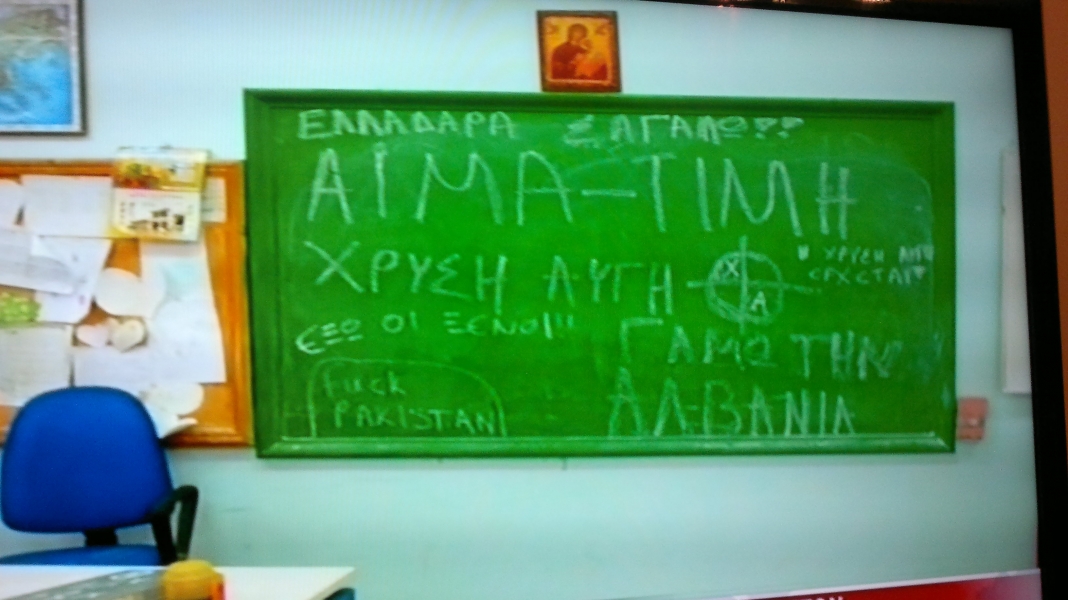 ΕΛΛΑΔΑΡΑ Σ'ΑΓΑΠΩ??
ΑΙΜΑ-ΤΙΜΗ
ΧΡΥΣΗ ΑΥΓΗ
Χ
Α
Η ΧΡΥΣΗ ΑΥΓΗ
ΕΡΧΕΤΑΙ
ΕΞΩ ΟΙ ΞΕΝΟΙ!!
ΓΑΜΩ ΤΗΝ
ΑΛΒΑΝΙΑ
Fuck
PAKISTAN